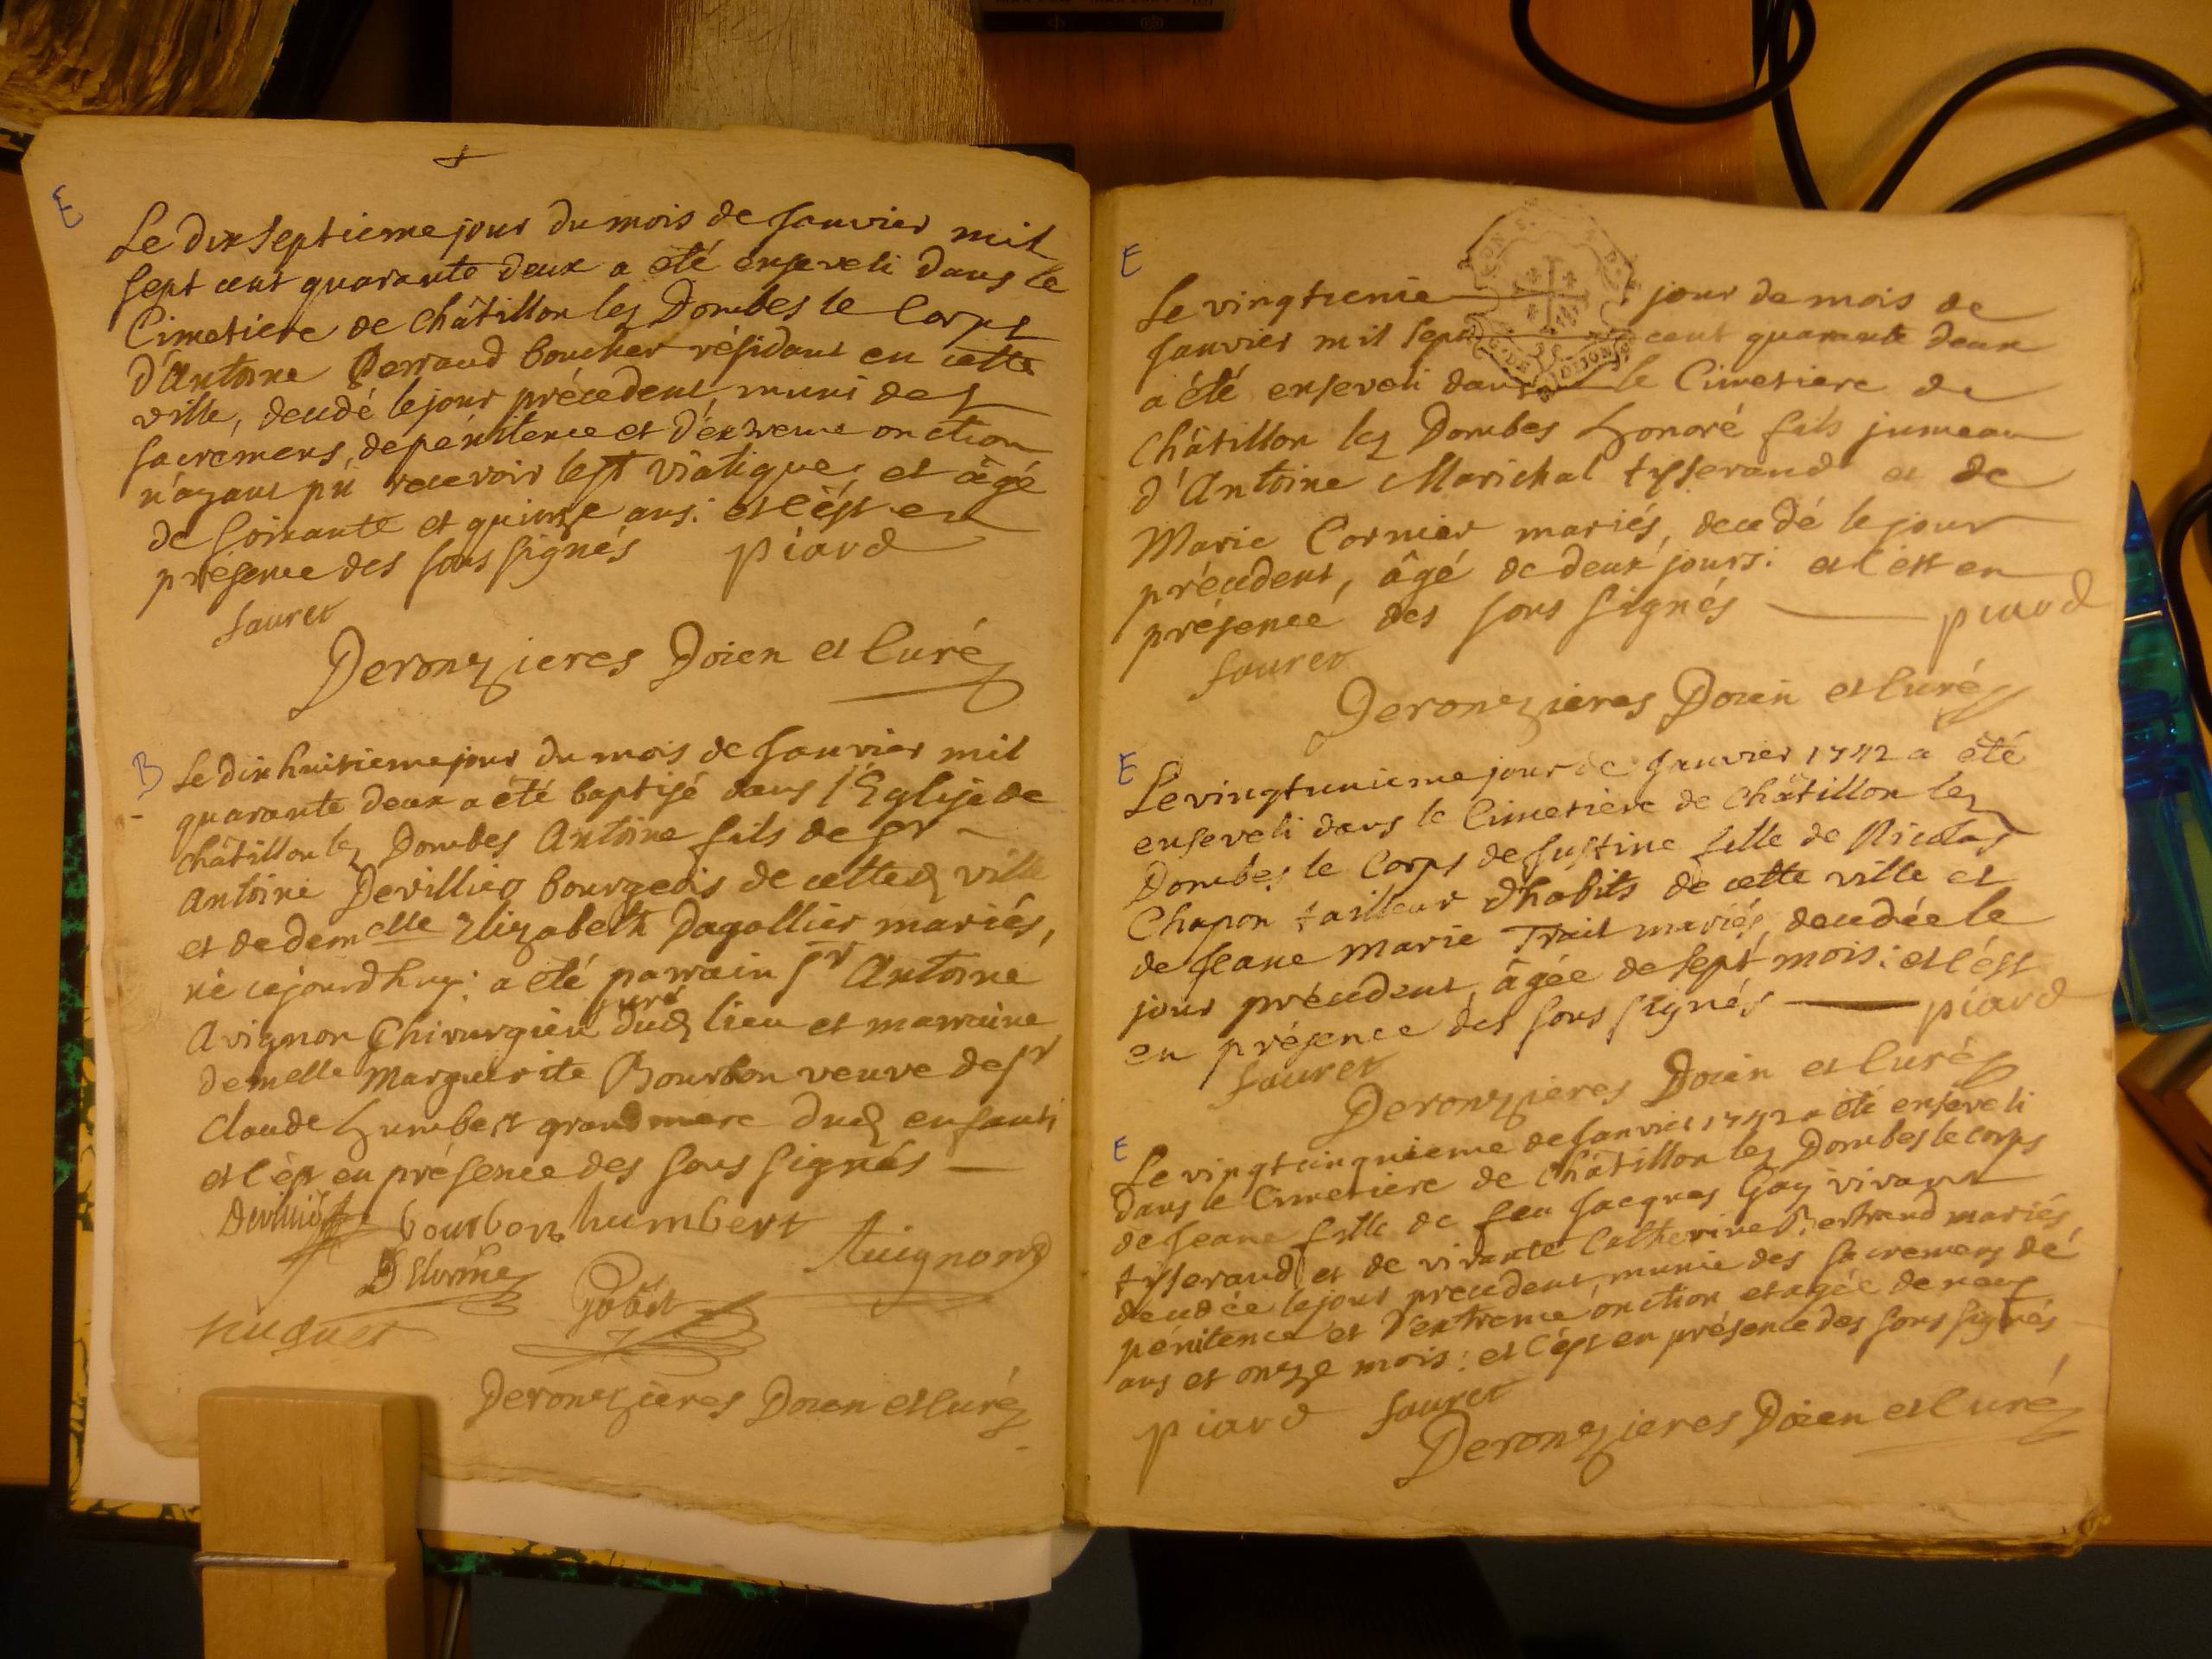 E
Le dix septieme jour du mois de Janvier mil
sept cent quarante deux a été enseveli dans le
Cimetiere de Châtillon les Dombes le Corps
d'Antoine Perraud boucher résidant en cette
ville, decedé le jour précedent, muni des
sacremens, de pénitence et d'extreme onction
n'ayant pû recevoir le st viatique, et âgé
de soixante et quinze ans: et c'est en
présence des sous signés piard
sauret
Deronzieres Doien et Curé
B
Le dix huitieme jour du mois de Janvier mil
quarante deux a été baptisé dans l'Eglise de
châtillon les Dombes Antoine fils de Sr
Antoine Devillier bourgeois de cetted ville
et de demelle Elizabeth Dagallier mariés,
né cejourdhuy: a été parrain Sr Antoine
Avignon Chirurgien juré dud lieu et marraine
demelle Marguerite Bourbon veuve de Sr
Claude humbert grand mere dud enfant:
et c'est en présence des sous signés
bourbon humbert
Auignon
Deronzieres Doien et Curé
E
Le vingtieme jour de mois de
Janvier mil sept cent quarante deux
a été enseveli dans le Cimetiere de
Châtillon les Dombes honoré fils jumeau
d'Antoine Marichal tisserand et de
Marie Cornier mariés, decedé le jour
précedent, âgé de deux jours: et c'est en
présence des sous signés piard
sauret
Deronzieres Doien et Curé
E
Le vingtunieme jour de Janvier 1742 a été
enseveli dans le Cimetiere de Châtillon les
Dombes le Corps de Justine fille de Nicolas
Chapon tailleur d'habits de cette ville et
de Jeane Marie Trait mariés, decedée le
jour précedent, âgée de sept mois: et c'est
en présence des sous signés piard
sauret
Deronzieres Doien et Curé
E
Le vingtcinquieme de Janvier 1742 a été enseveli
dans le Cimetiere de Châtillon les Dombes le corps
de Jeane fille de feu Jacques Gay vivant
tisserand et de vivante Catherine Bertrand mariés,
decedée le jour precedent, munie des sacremens de
pénitence et d'extreme onction et agée de neuf
ans et onze mois: et c'est en présence des sous signés
piard sauret
Deronzieres Doien et Curé